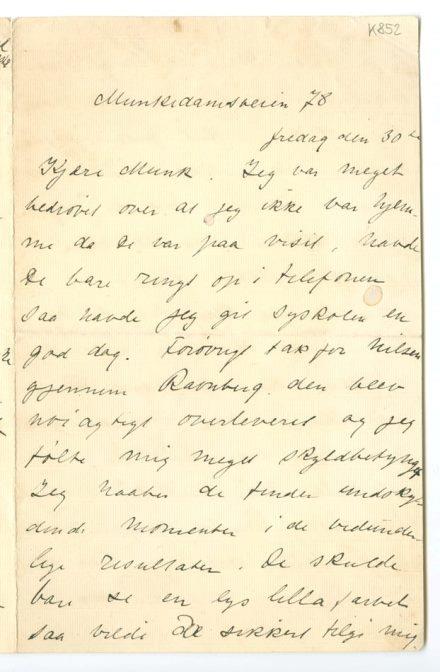 K852
Munkedamsveien 78
fredag den 30te
Kjære Munk. Jeg var meget
bedrøvet over at jeg ikke var hjem-
me da De var paa visit, havde
De bare ringt op i telefonen
saa havde jeg git syskolen en
god dag. Forøvrigt tak for hilsen
gjennem Ravnberg. den blev
nøiagtigt overleveret og jeg
følte mig meget skyldbetynget
Jeg haaber de finder undskyl-
dende momenter i de vedunder-
lige resultater. De skulde
bare se en lys lilla farvet
saa vilde De sikkert tilgi mig.